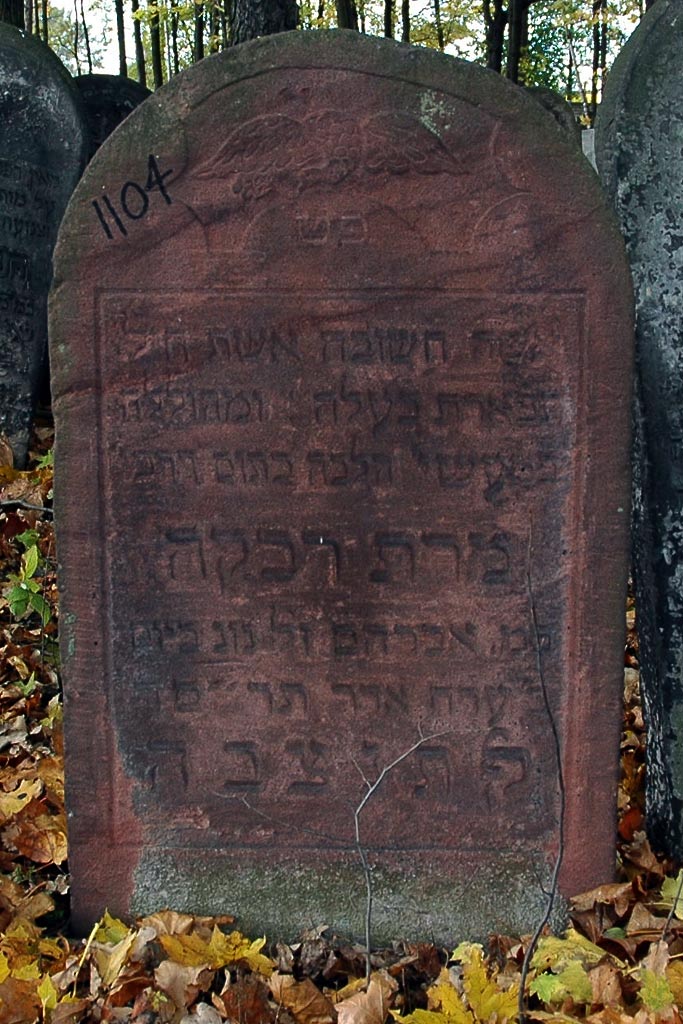 1104
פט
אשה חשובה אשת חיל
תפארת בעלה ומהוללה
במעשי' הלכה בתום דרכי'
מרת רבקה
במ' אברהם ז"ל נונ ביום
ערח אדר תר"ס
ת נ צ ב ה